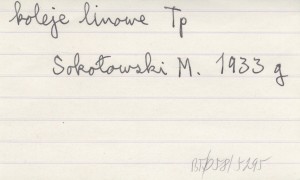 koleje linowe Tp
Sokołowski M. 1933 g